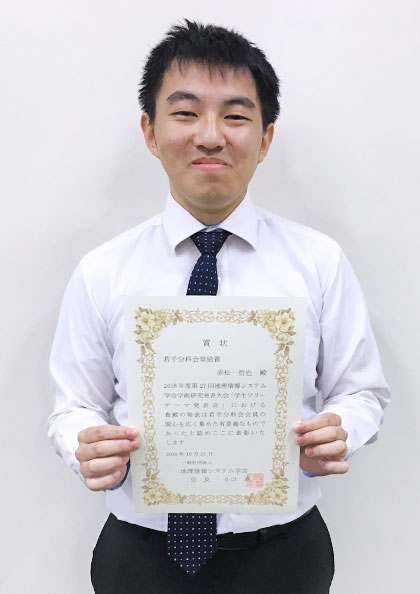 賞状
若手分科会奨励賞
赤松 哲也 殿
2018年度第27回地理情報システム
学会学術研究発表大会「学生フリー
テーマ発表会」における
貴殿の発表は若手分科会会員の
関心を広く集めた有意義なもので
あったと認めここに表彰いた
します
2018年10月21日
一般社団法人
地理情報システム学会
会長